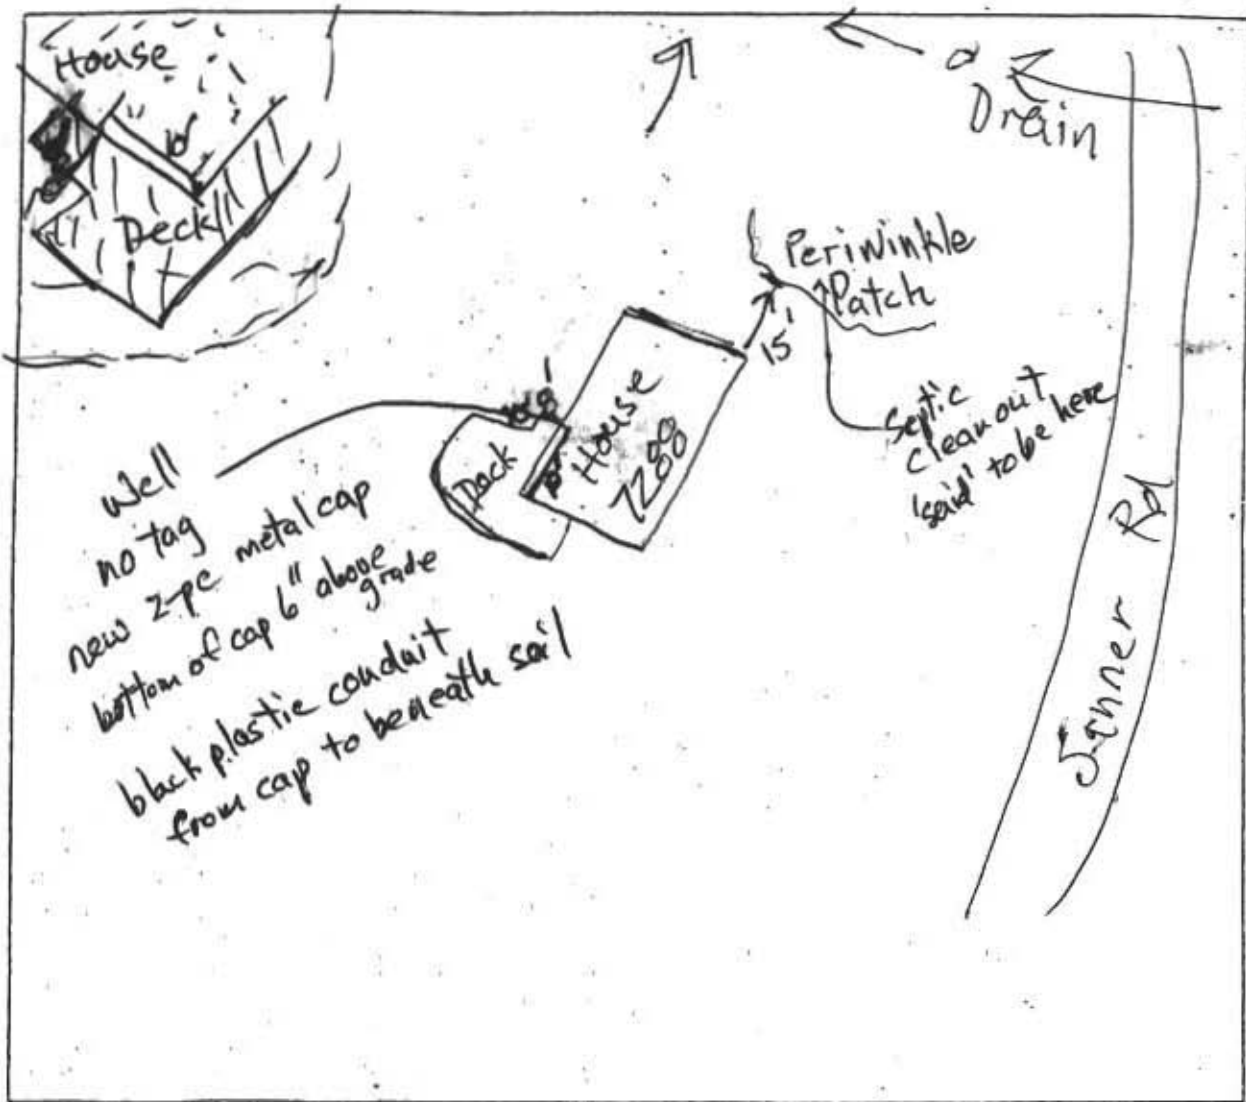 House
Deck
Drain
Periwinkle
Patch
15'
Septic
clean out
'said' to be here
House
7280
Deck
8'
Well
no tag
new 2-pc metal cap
bottom of cap 6" above
grade
black plastic conduit
from cap to beneath soil
Sanner Rd